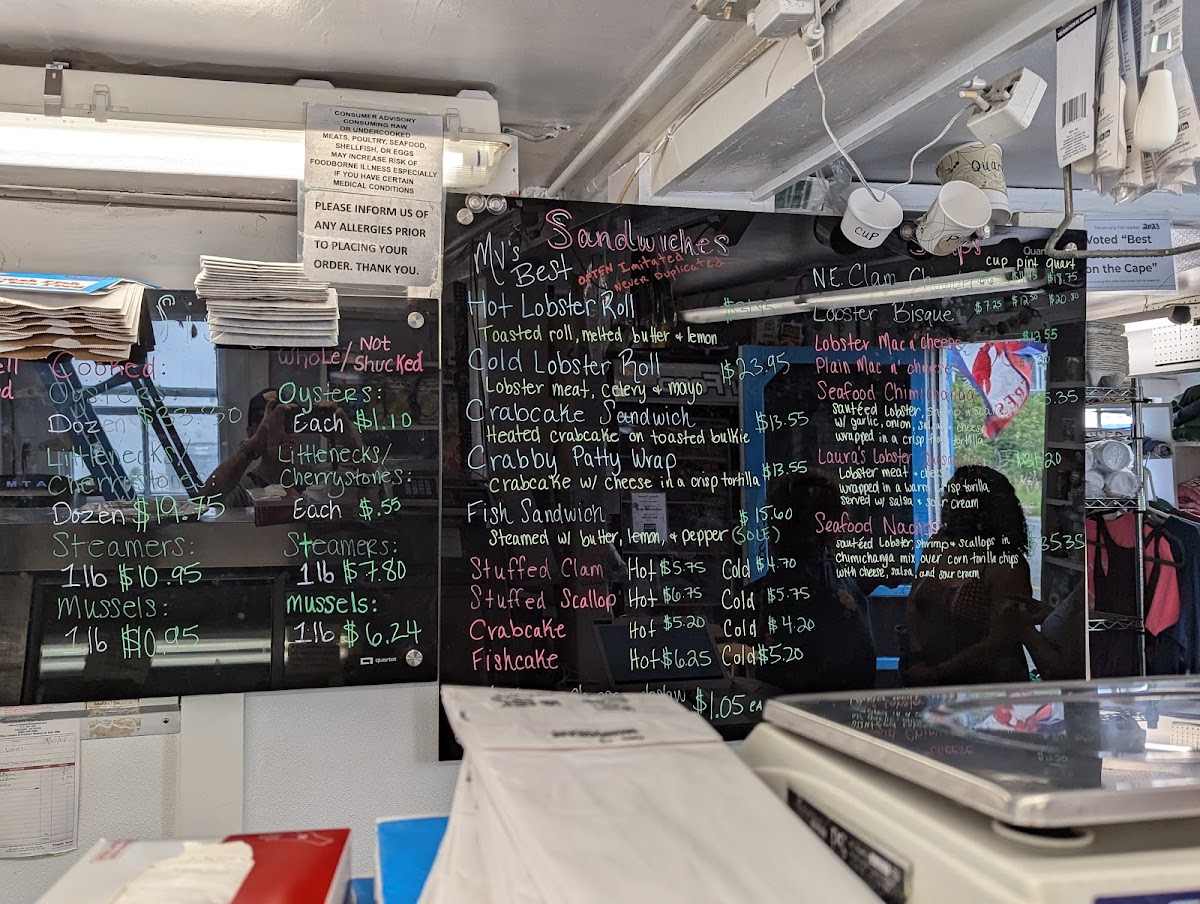 CONSUMER ADVISORY
CONSUMING RAW
OR UNDERCOOKED
MEATS, POULTRY, SEAFOOD,
SHELLFISH, OR EGGS
MAY INCREASE RISK OF
FOODBORNE ILLNESS ESPECIALLY
IF YOU HAVE CERTAIN
MEDICAL CONDITIONS
PLEASE INFORM US OF
ANY ALLERGIES PRIOR
TO PLACING YOUR
ORDER. THANK YOU.
Cooked:
Oysters:
Dozen
Littlenecks/
Cherrystones:
Dozen $19.75
Steamers:
1lb $10.95
Mussels:
1lb $10.95
Not
Whole/Shucked
Oysters:
Each $1.10
Littlenecks/
Cherrystones:
Each $.55
Steamers:
1lb $7.80
mussels:
1lb $6.24
quartet
My's
Best
Sandwiches
OFTEN Imitated
Never Duplicated
Hot Lobster Roll
Toasted roll, melted butter & lemon
Cold Lobster Roll $23.95
Lobster meat, celery & mayo
Crabcake Sandwich $13.55
Heated crabcake on toasted bulkie
Crabby Patty Wrap
crabcake w/ cheese in a crisp tortilla $13.55
Fish Sandwich $15.60
Steamed w/ butter, lemon, & pepper (SOLE)
Stuffed Clam Hot $5.75 Cold $4.70
Stuffed Scallop Hot $6.75 Cold $5.75
Crabcake Hot $5.20 Cold $4.20
Fishcake Hot $6.25 Cold $5.20
$1.05 ea
cup pint quart
N.E. Clam Chowder $18.75
Lobster Bisque $7.25 $12.50 $20.80
Lobster Mac n' cheese
Plain Mac n' cheese
Seafood Chimichanga
sautéed lobster, shrimp &
w/ garlic, onion, salsa & cheese
wrapped in a crisp tortilla
Laura's Lobster
Lobster meat & cheese
wrapped in a warm crisp tortilla
served w/ salsa & sour cream
Seafood Nachos $35.35
sautéed Lobster, shrimp & scallops in
chimichanga mix over corn tortilla chips
with cheese, salsa, and sour cream
cup
Quart
2023
Voted "Best
on the Cape"